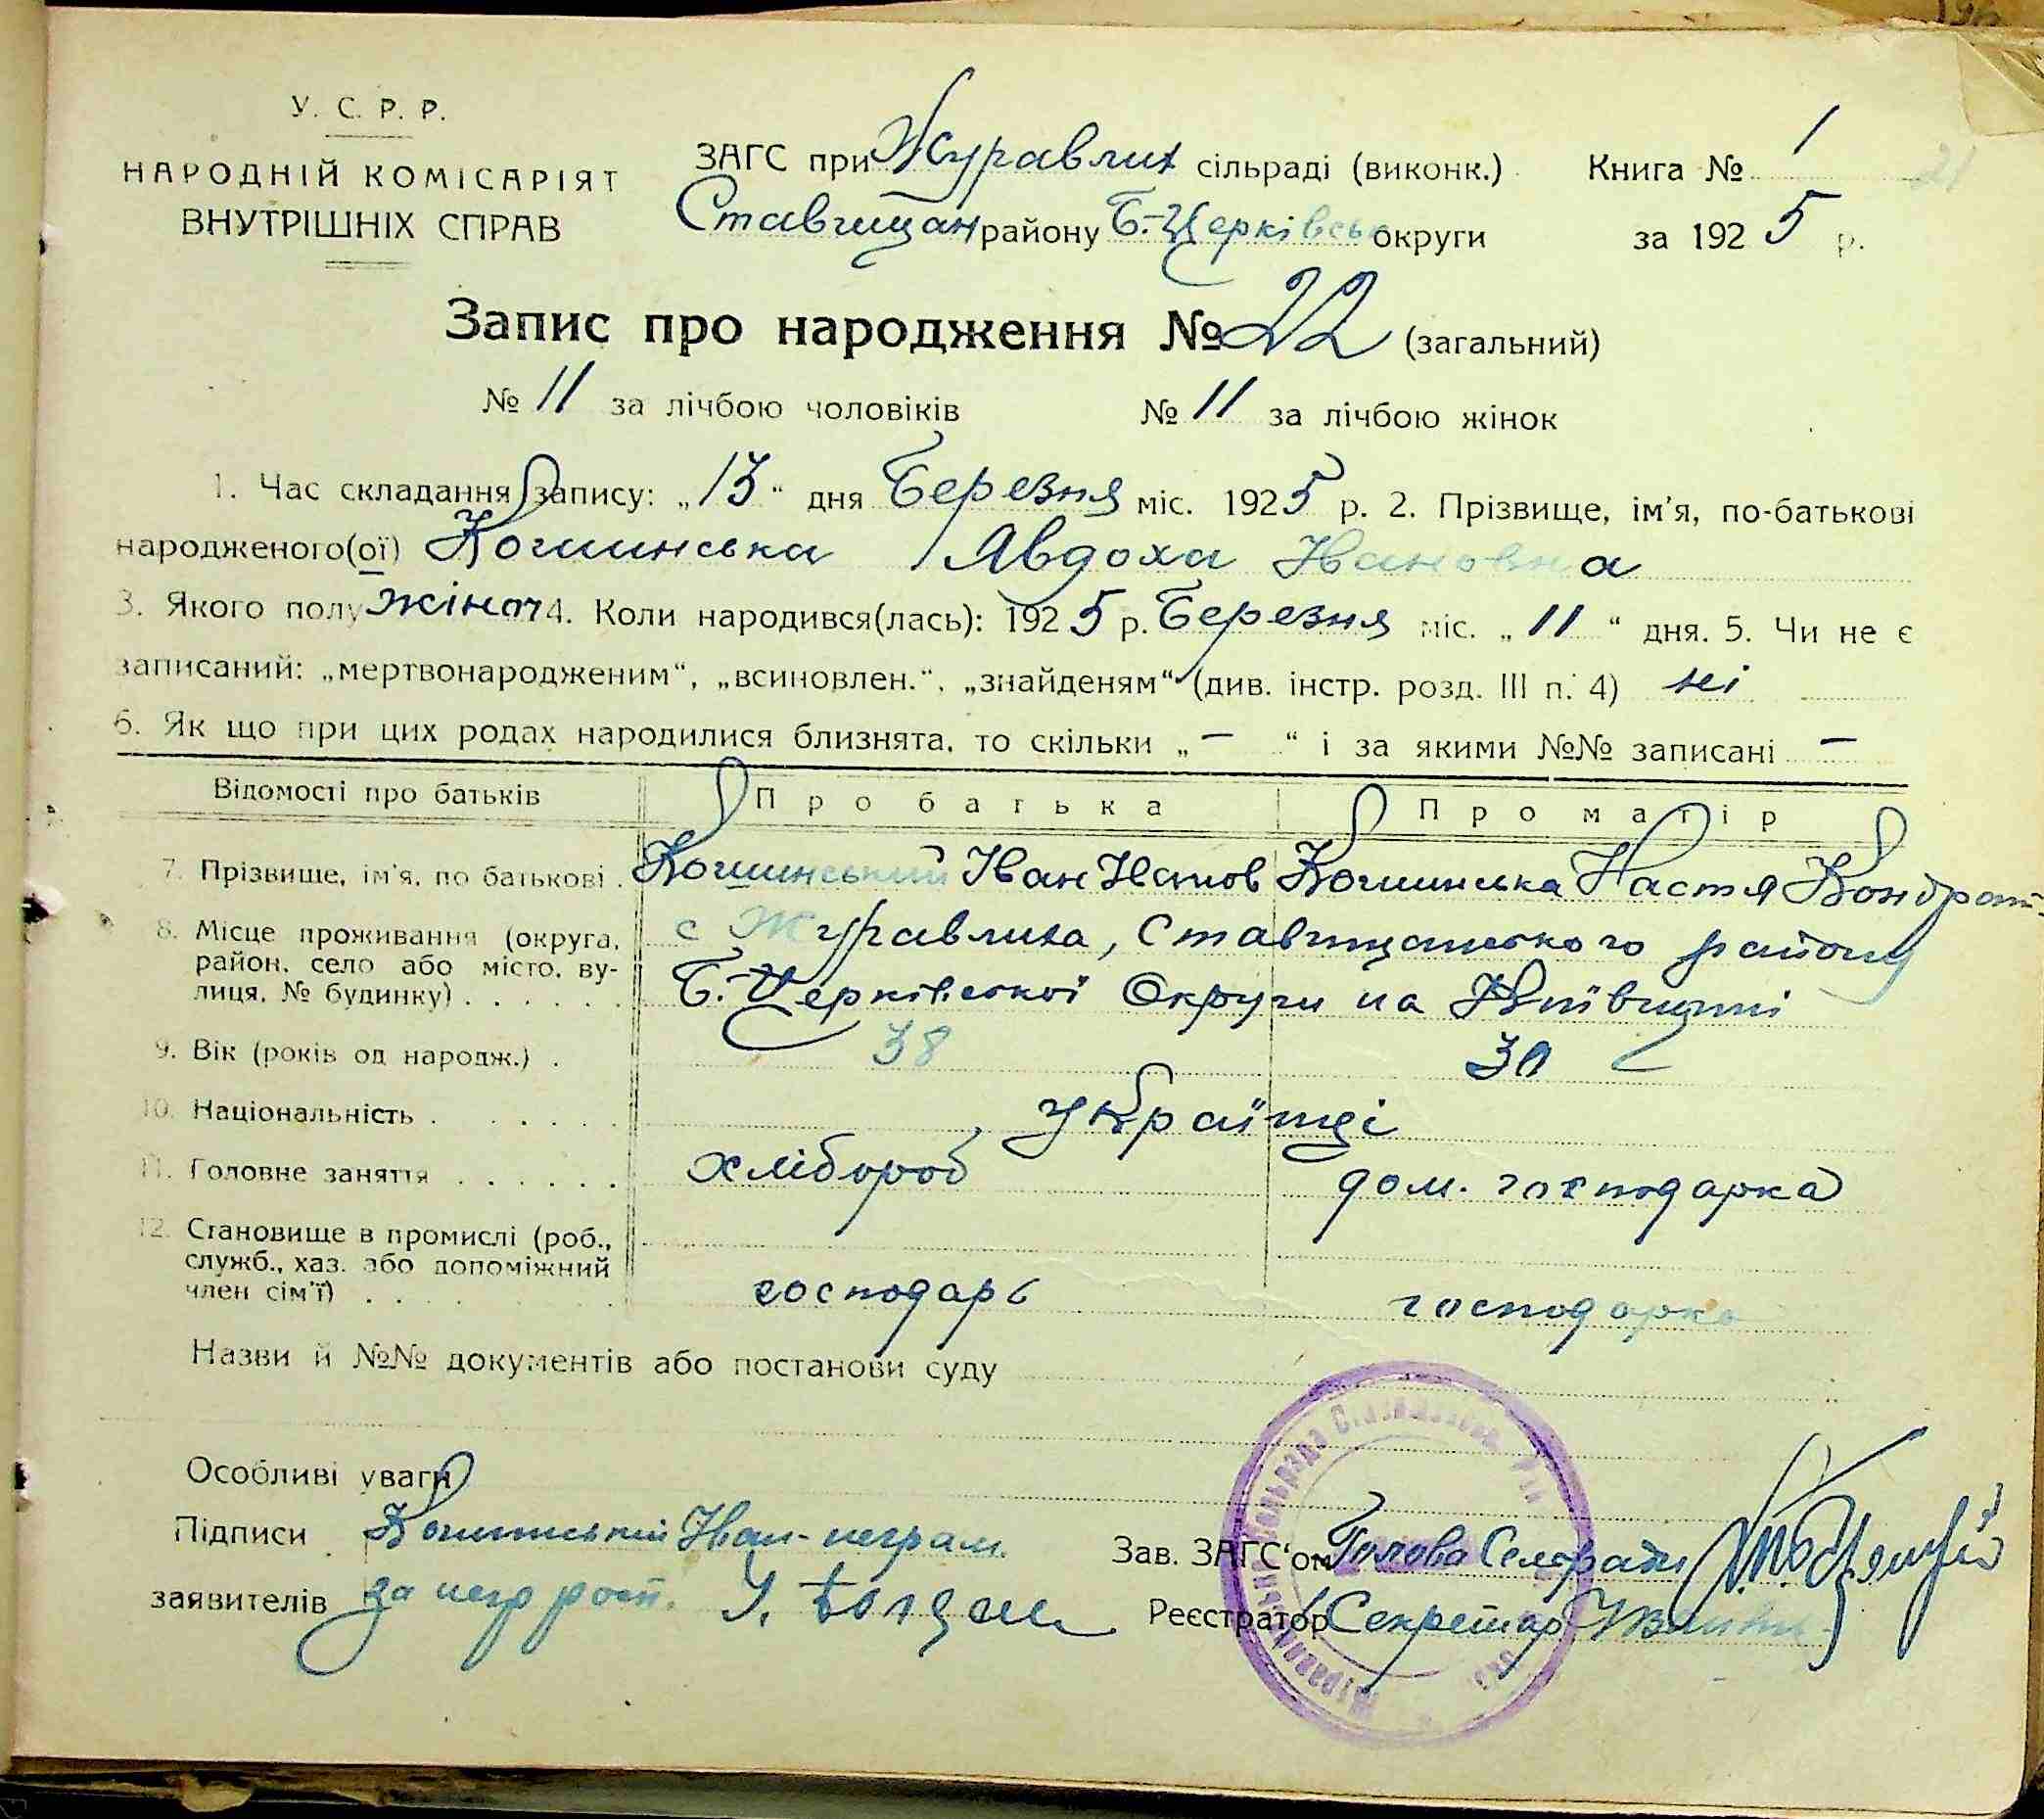 У. С. Р. Р.
НАРОДНІЙ КОМІСАРІЯТ
ВНУТРІШНІХ СПРАВ
ЗАГС при Журавлих сільраді (виконк.) Книга № 1
21
Ставищан району Б.-Церківськ округи за 1925 р.
Запис про народження № 22 (загальний)
№ 11 за лічбою чоловіків № 11 за лічбою жінок
1. Час складання запису: „13“ дня Березня міс. 1925 р. 2. Прізвище, ім'я, по-батькові
народженого(ої) Кошинська Явдоха Івановна
3. Якого полу жіноч 4. Коли народився(лась): 1925 р. Березня міс. „11“ дня. 5. Чи не є
записаний: „мертвонародженим“, „всиновлен.“, „знайденям“ (див. інстр. розд. III п. 4) ні
6. Як що при цих родах народилися близнята, то скільки „—“ і за якими №№ записані —
Відомості про батьків Про батька Про матір
7. Прізвище, ім'я, по батькові. Кошинський Іван Іванов Кошинська Настя Кондрат
8. Місце проживання (округа, район, село або місто, вулиця, № будинку) с Журавлиха, Ставищанського району
Б.-Церківської Округи на Київщині
9. Вік (років од народж.) . 38 30
10. Національність . . . . . . Українці
11. Головне заняття . . . . . . хлібороб дом. господарка
12. Становище в промислі (роб.,
служб., хаз. або допоміжний
член сім'ї) . . . господарь господарка
Назви й №№ документів або постанови суду
Особливі уваги
Підписи Кошинський Іван - неграм. Зав. ЗАГС'ом Голова Сельради
заявителів за негр росп. Реєстратор Секретар